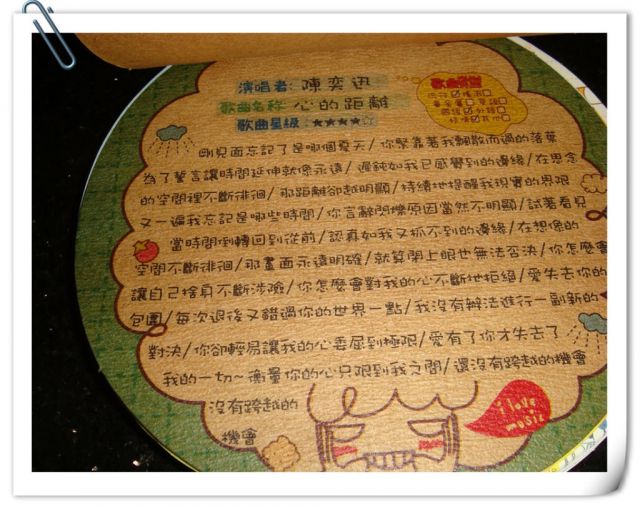 演唱者: 陳奕迅
歌曲名稱 心的距離
歌曲星級: ★★★★☆
剛見面忘記了是哪個夏天/你緊靠著我飄散而過的落葉
為了誓言讓時間延伸就像永遠/遲鈍如我已感覺到的邊緣/在思念
的空間裡不斷徘徊/那距離卻越明顯/持續地提醒我現實的界限
又一遍我忘記是哪些時間/你言辭閃爍原因當然不明顯/試著看見
當時間倒轉回到從前/認真如我又抓不到的邊緣/在想像的
空間不斷徘徊/那畫面永遠明確/就算閉上眼也無法否決/你怎麼會
讓自己捨身不斷涉險/你怎麼會對我的心不斷地拒絕/愛失去你的
包圍/每次退後又錯過你的世界一點/我沒有辦法進行一副新的
對決/你卻輕易讓我的心委屈到極限/愛有了你才失去了
我的一切~衡量你的心只限到我之間/還沒有跨越的機會
沒有跨越的
機會
i love music